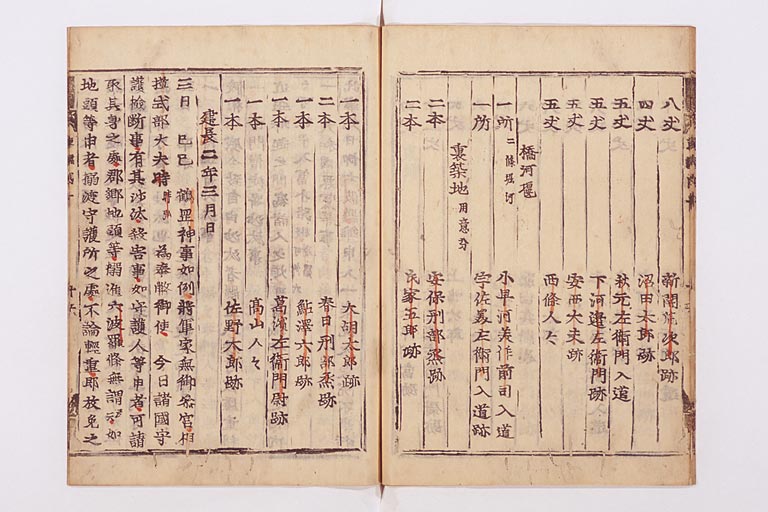 八丈 新開荒次郎跡
四丈 沼田太郎跡
五丈 秋元左衛門入道
五丈 下河邊左衛門跡
五丈 安西大夫跡
五丈 西條人々
橋河堰
一所 二條堀河 小早河美作前司入道
一所 宇佐美左衛門入道跡
裏築地 用意分
二本 安保刑部丞跡
二本 家五郎跡
一本 大胡太郎跡
二本 春日刑部丞跡
一本 鮎澤六郎跡
一本 萬濱左衛門尉跡
一本 高山人々
一本 佐野太郎跡
建長二年三月日
三日 己巳 鶴罡神事如例將軍家無御參宮相
摸式部大夫時 為奉幣御使 今日諸國守
護檢断事有其沙汰殺害事如守護人等申者可請
取其身之處郡郷地頭等搦進六波羅條無謂云如
地頭等申者搦渡守護所之處不論輕重即放免之